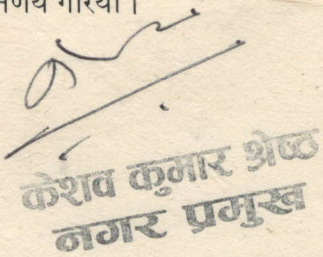 निर्णय गरियो ।
केशव कुमार श्रेष्ठ
नगर प्रमुख